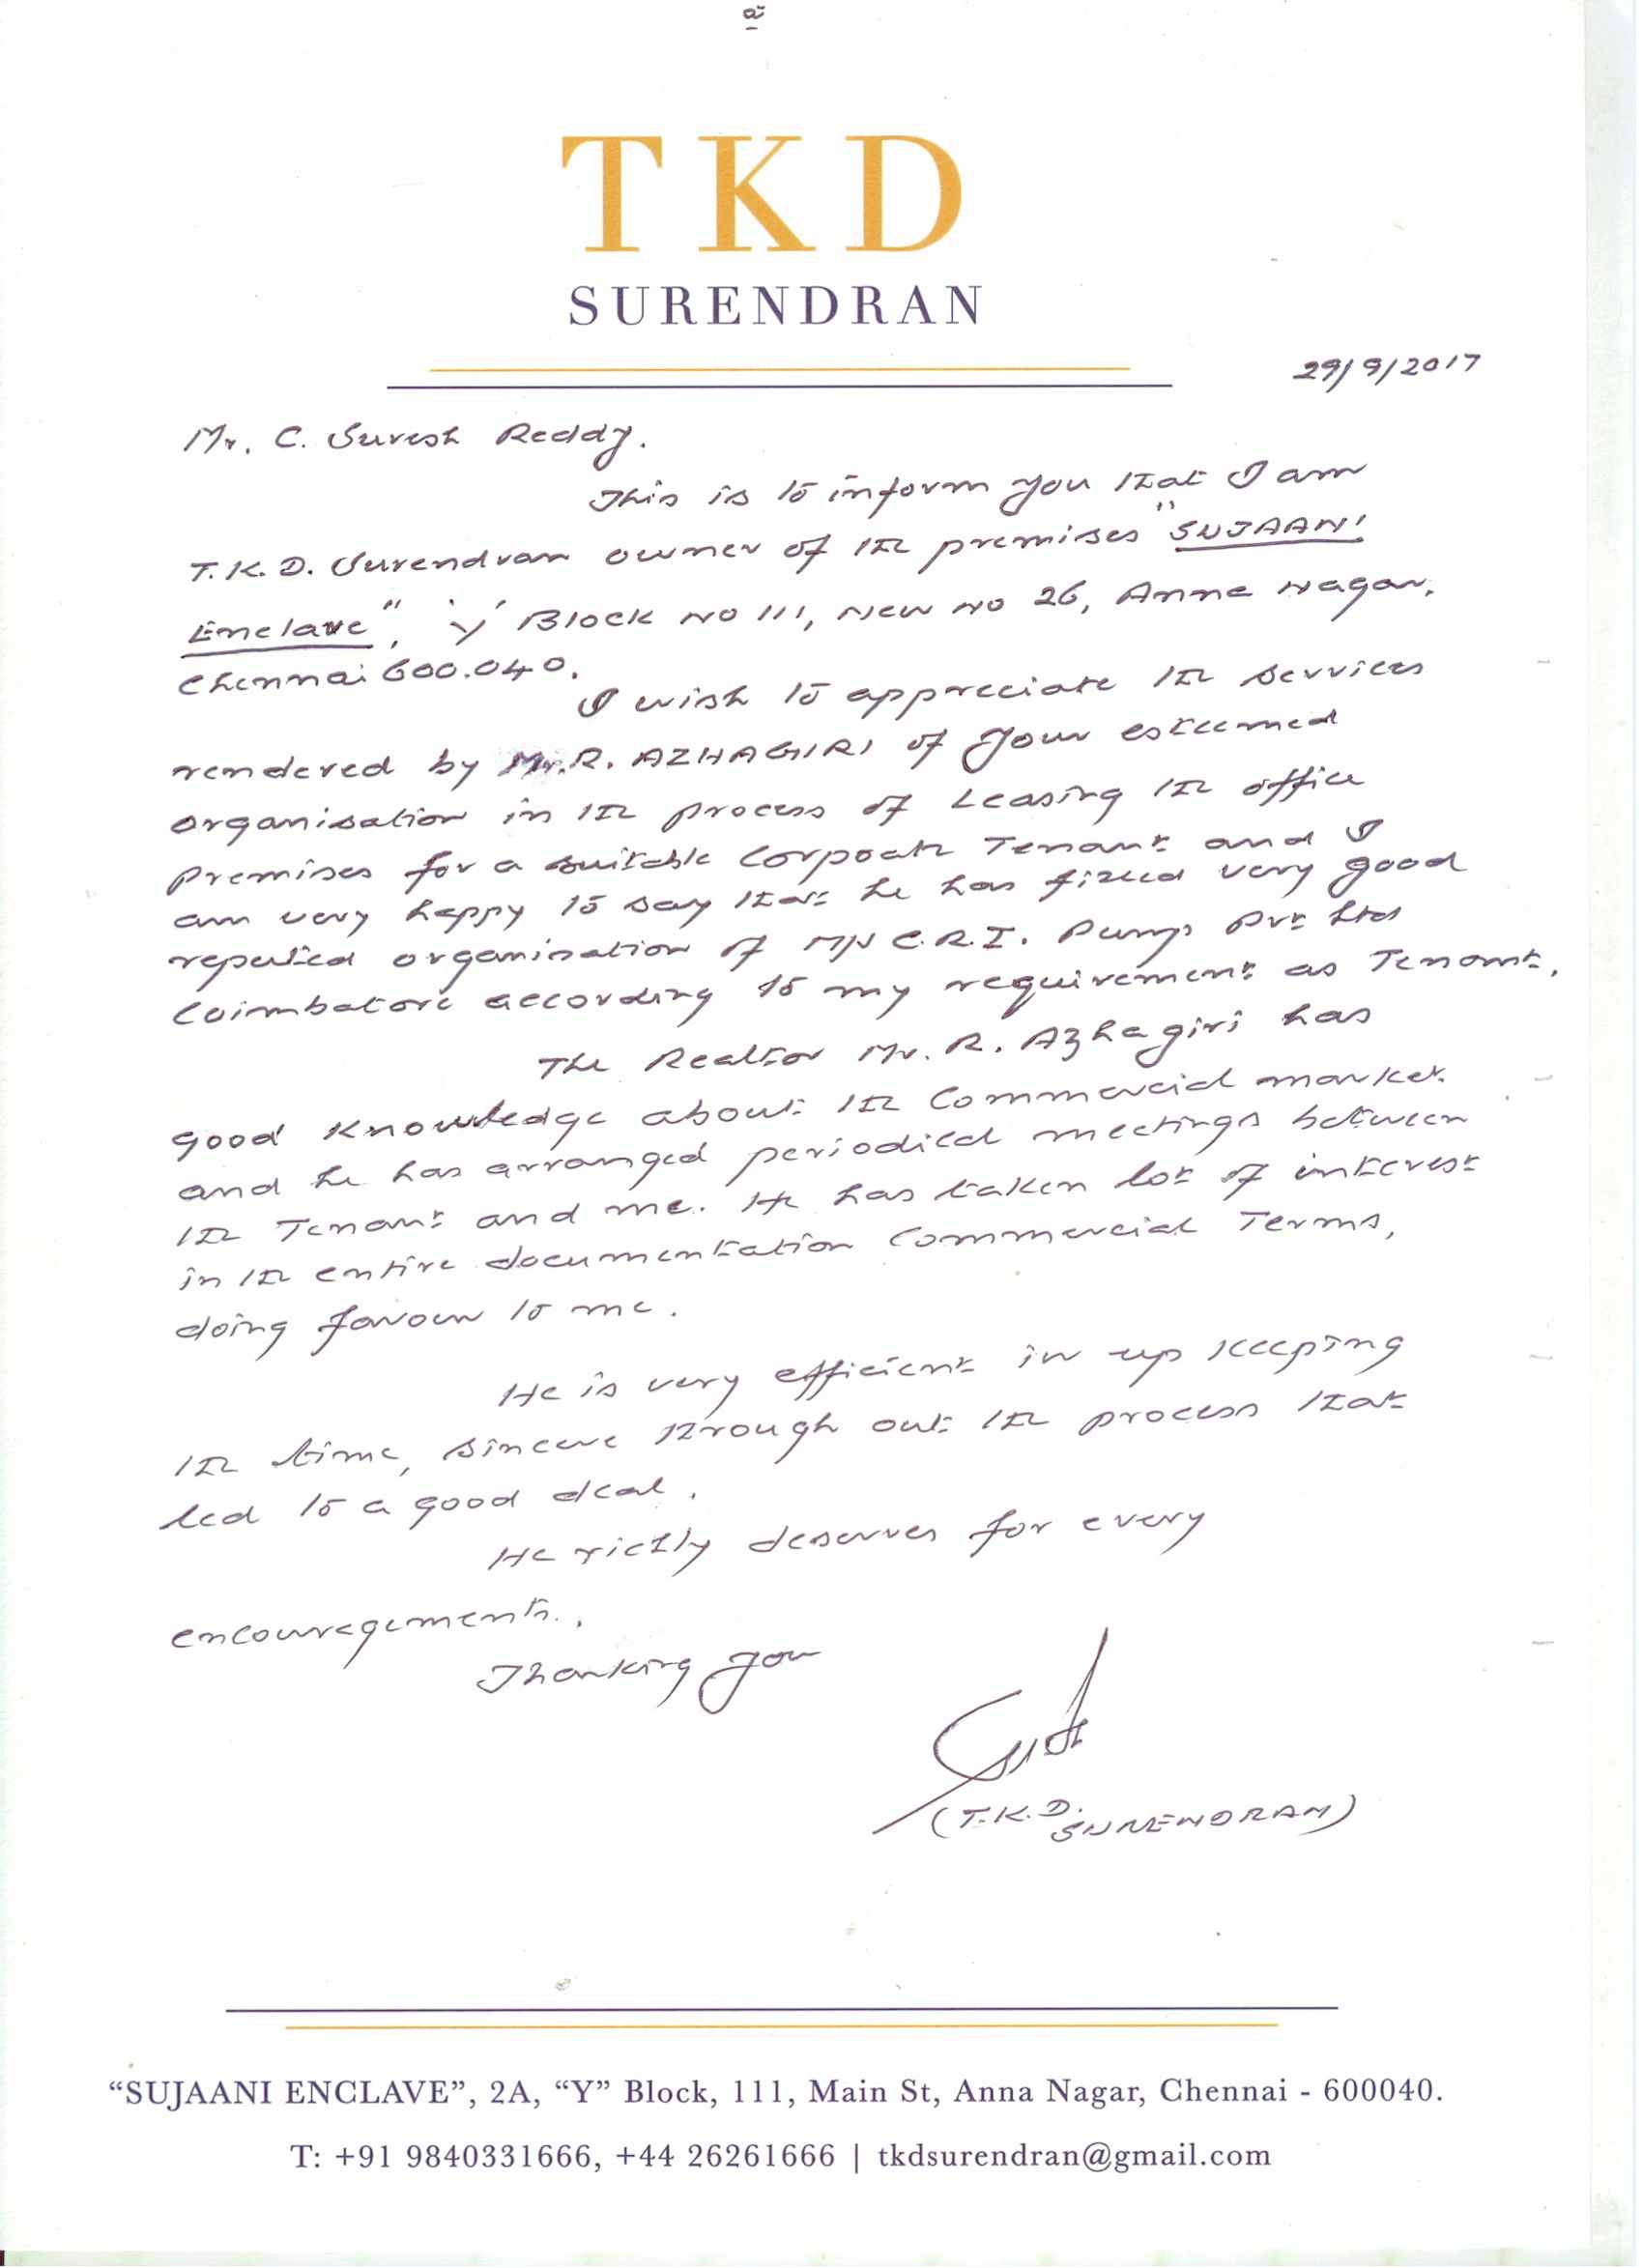 TKD
SURENDRAN
29/9/2017
Mr. C. Suresh Reddy.
This is to inform you that I am
T.K.D. Surendran owner of the premises "SUJAANI
Enclave", 'Y' Block No 111, New No 26, Anna Nagar,
Chennai 600.040.
I wish to appreciate the services
rendered by Mr. R. AZHAGIRI of your esteemed
organisation in the process of Leasing the office
premises for a suitable Corpoate Tenant and I
am very happy to say that he has fixed very good
reputed organisation of M/s C.R.I. Pumps Pvt Ltd
Coimbatore according to my requirement as Tenant.
The Realtor Mr. R. Azhagiri has
good knowledge about the Commercial market
and he has arranged periodical meetings between
the Tenant and me. He has taken lot of interest
in the entire documentation Commercial Terms,
doing favour to me.
He is very efficient in up keeping
the time, sincere through out the process that
led to a good deal.
He richly deserves for every
encouragements.
Thanking you
(T.K.D. SURENDRAN)
“SUJAANI ENCLAVE”, 2A, “Y” Block, 111, Main St, Anna Nagar, Chennai - 600040.
T: +91 9840331666, +44 26261666 | tkdsurendran@gmail.com